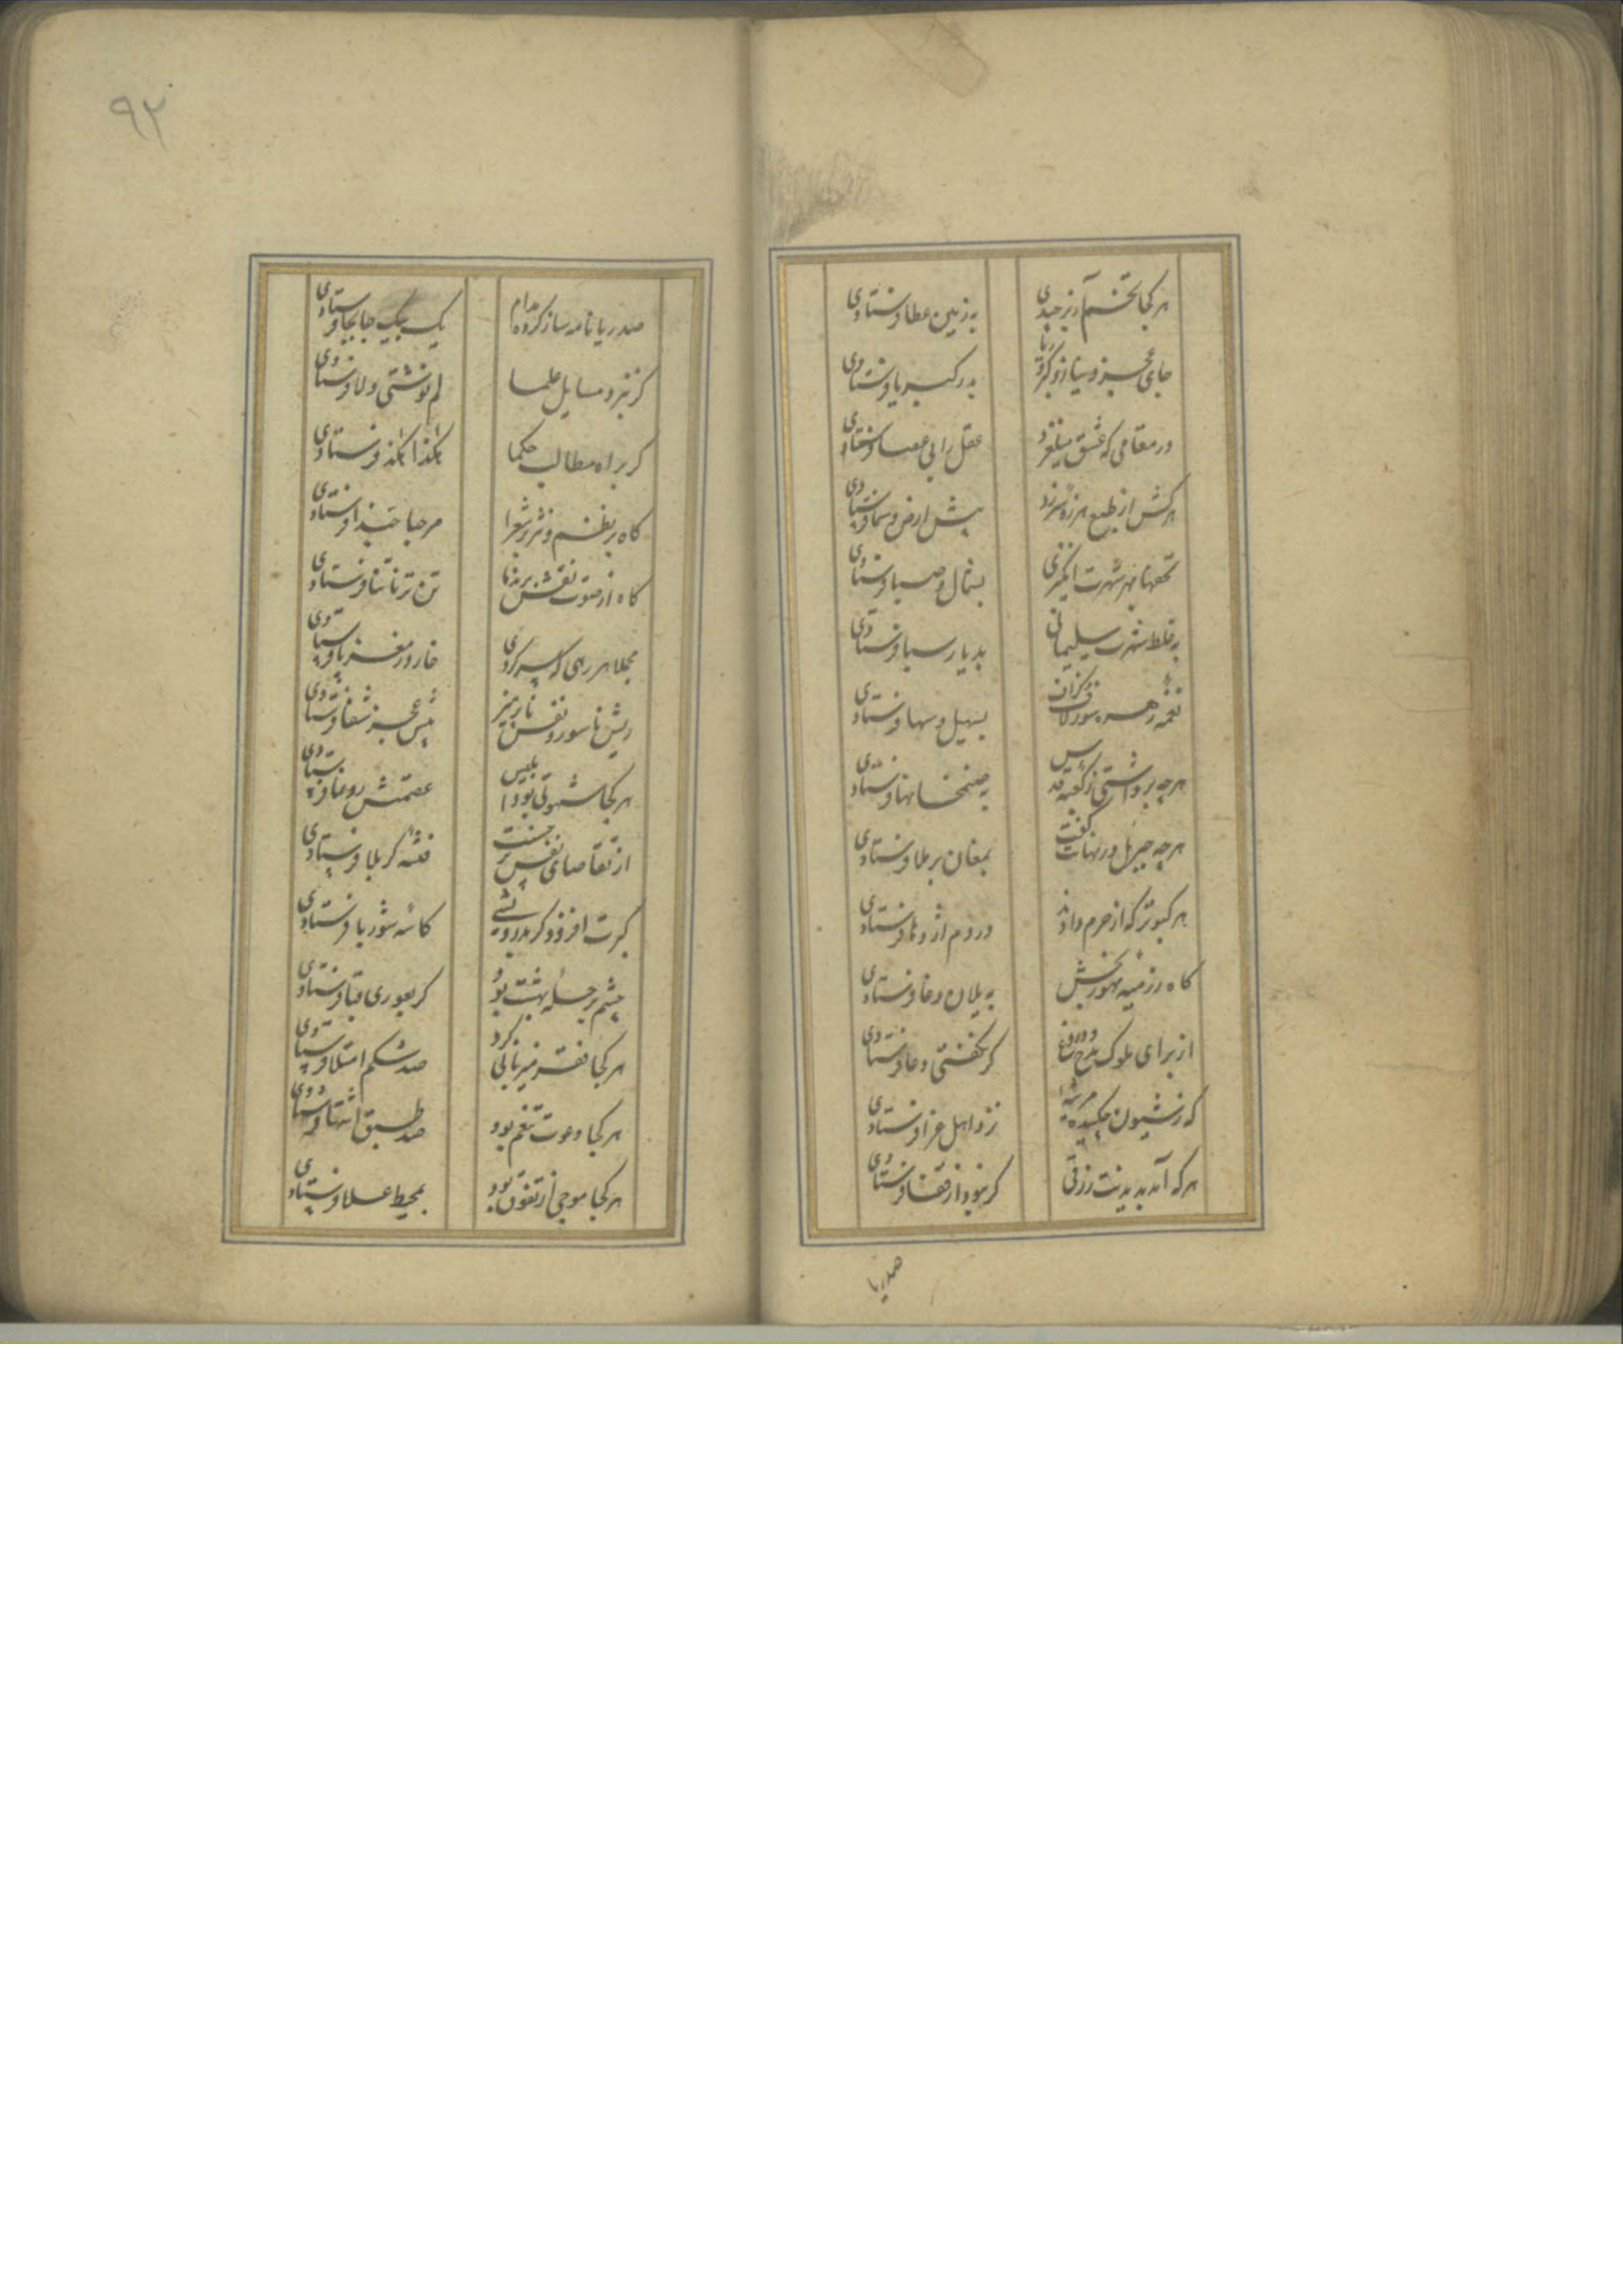 ۹۲
هر کجا تخم آز برچیدی به زمین عطا فرستادی
جای عجز و نیاز و کبر و ریا بدر کبریا فرستادی
در مقامی که عشق میلغزد عقل را بی عصا فرستادی
هر کش از طبع هرزه سرزد پیش ارض و سما فرستادی
تحفها بهر شهرت انگیزی بشمال و صبا فرستادی
به غلط شهرت سلیمانی بدیار سبا فرستادی
نغمه زهره بسهیل و سها فرستادی
هرچه برداشتی ز کعبه قدس به صنمخانها فرستادی
هرچه جبریل در نهانت گفت بمغان برملا فرستادی
هر کبوتر که از حرم دادند در دم اژدها فرستادی
گاه رزمیه تهوربخش به یلان دغا فرستادی
از برای ملوک مدح دروغ گر نگفتی دعا فرستادی
که ز شیون چکیده مرثیه نزد اهل عزا فرستادی
هر که آمد بدیدنت رزقی گر نبود از قفا فرستادی
صد ریا
صد ریا نامه ساز کرده مدام یک بیک جا بجا فرستادی
گر نبرد مسایل علما لم نوشتی و لا فرستادی
گر براه مطالب حکما هکذا هکذا فرستادی
گاه بر نظم و نثر شعرا مرحبا حبذا فرستادی
گاه از صوت نقش تن تر ناتنا فرستادی
مجملا هر رهی که سر کردی خار در مغز پا فرستادی
ریش ناسور و نفس ناپرهیز پیش عجز شفا فرستادی
هر کجا شهوتی بود ابلیس عصمتش رونما فرستادی
از تقاضای نفس فتنه کربلا فرستادی
کبرت افزود گر بدرویشی کاسه شوربا فرستادی
چشم بر حله بهشت بود گر بعوری قبا فرستادی
هر کجا فقر میزبانی کرد صد شکم امتلا فرستادی
هر کجا دعوت تنعم بود صد طبق اشتها فرستادی
هر کجا موجی از تفوق بود بمحیط علا فرستادی